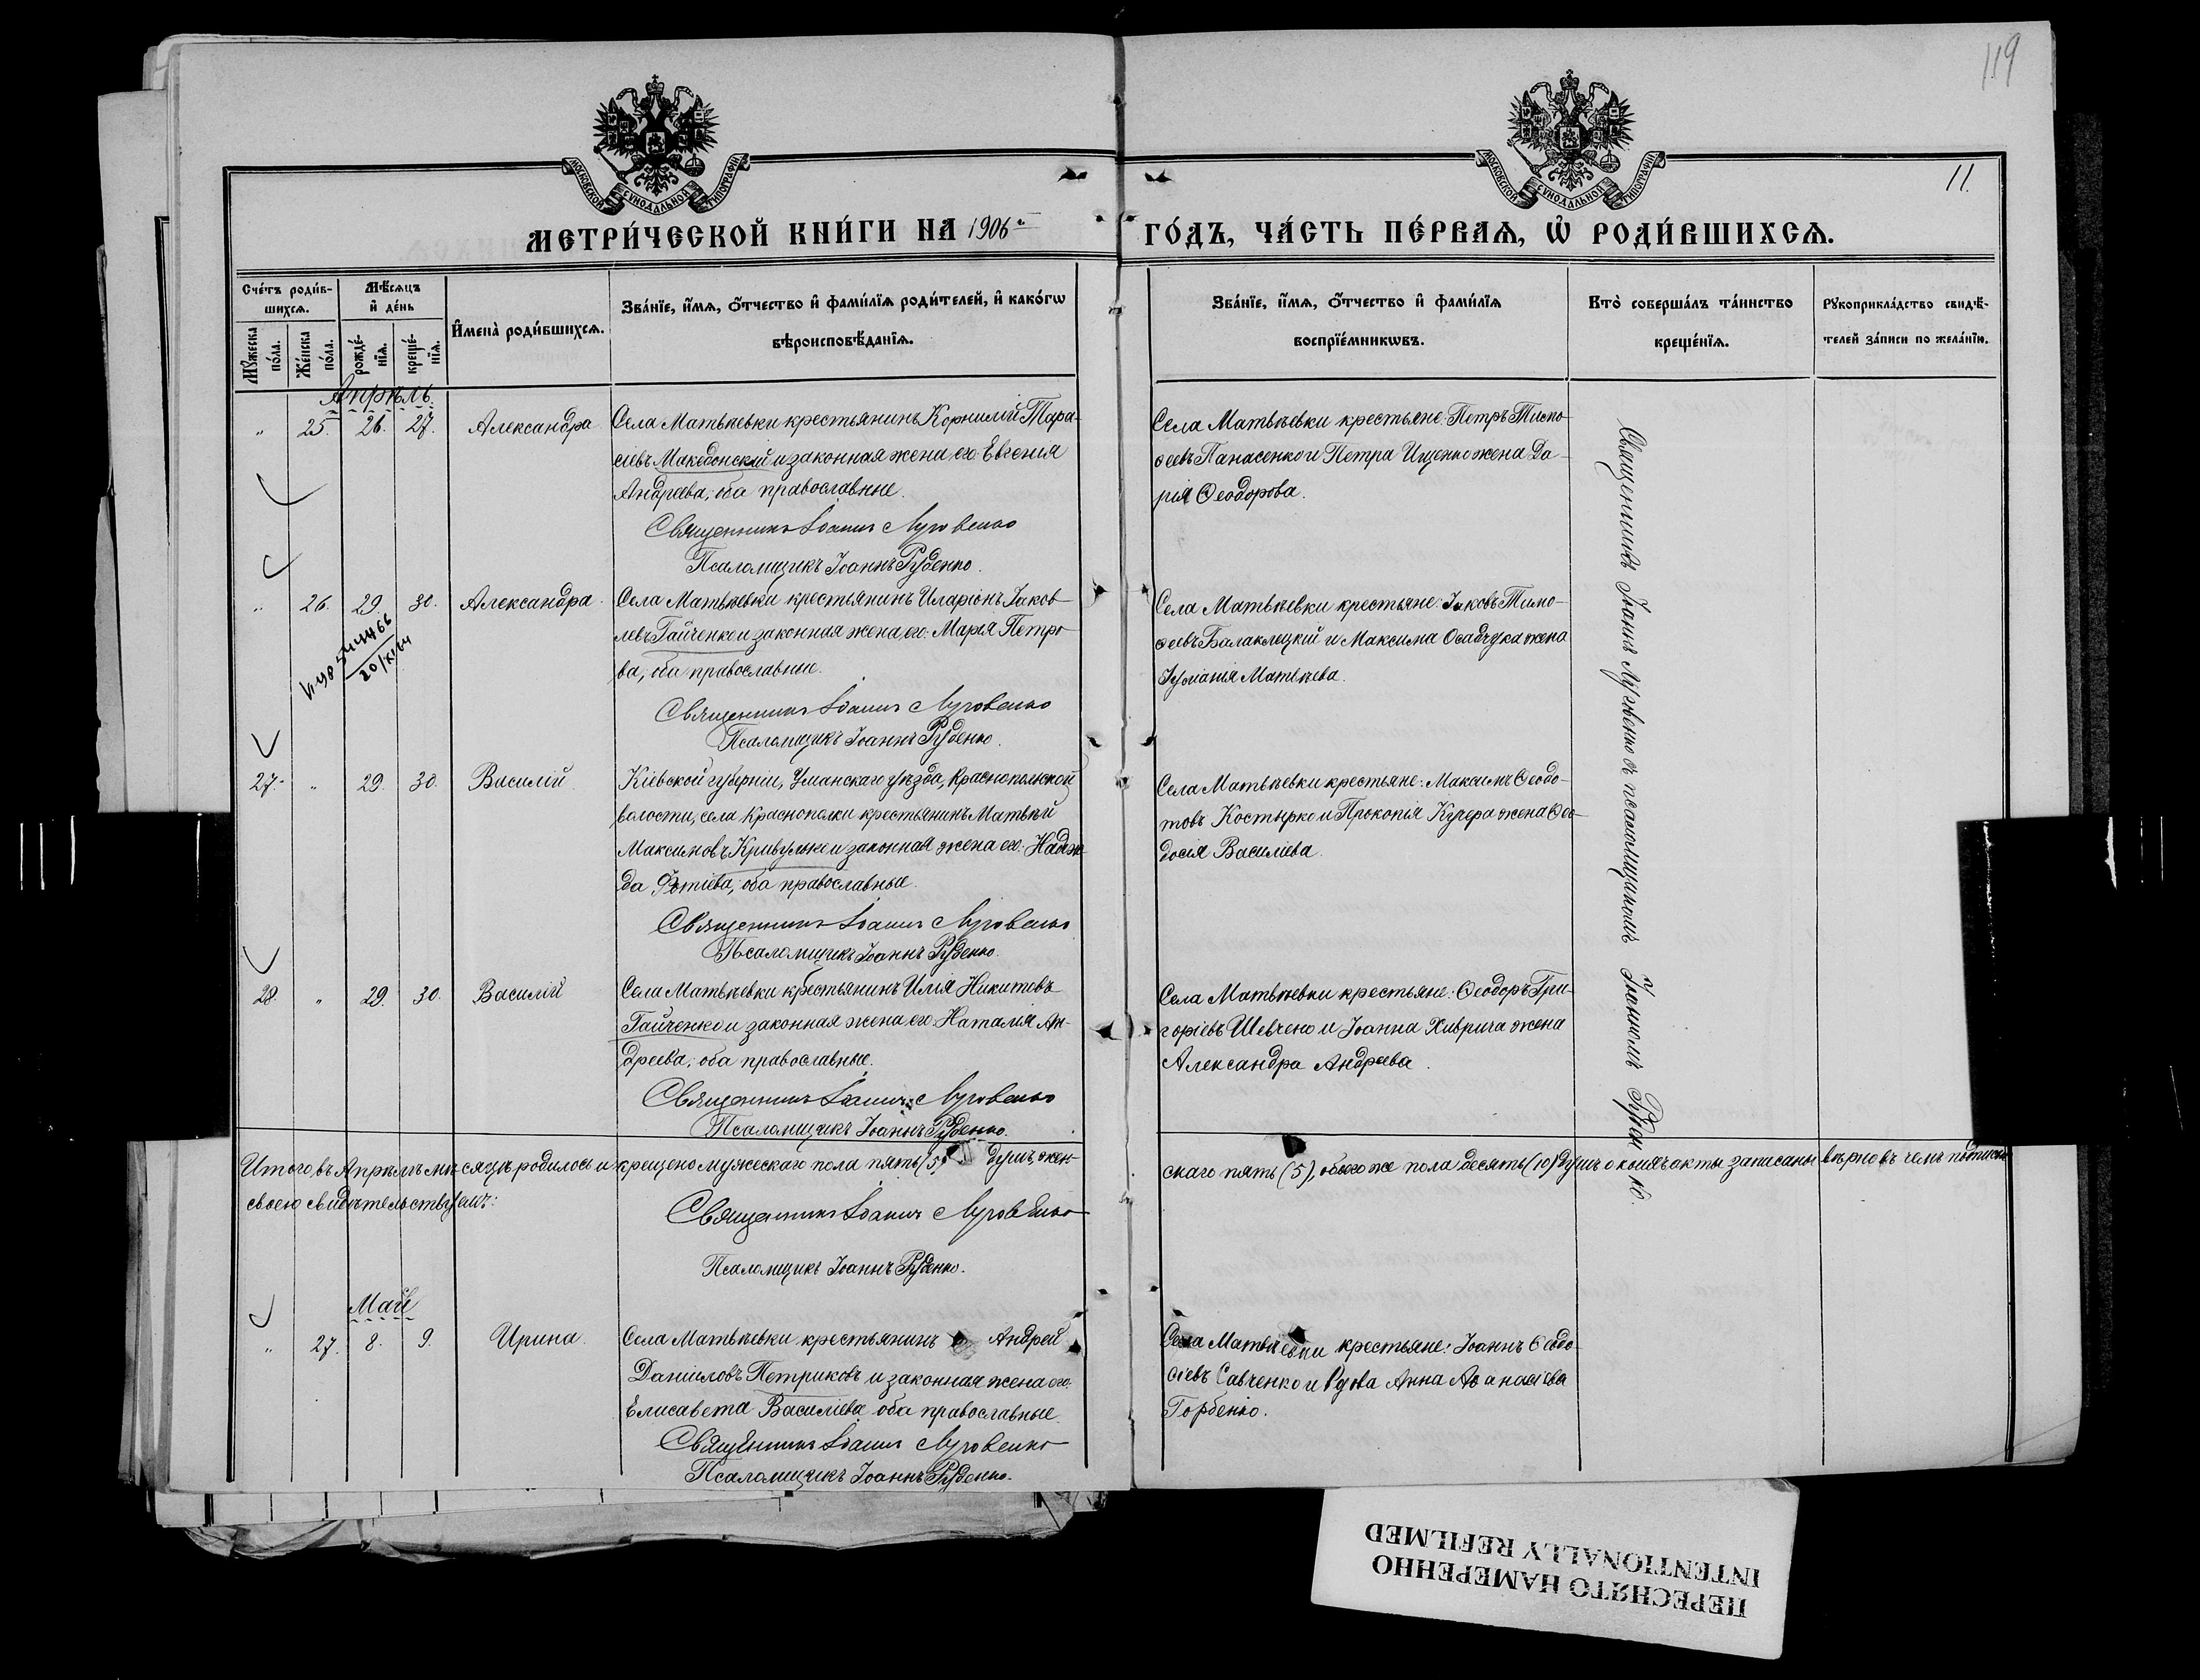 119
11.
МОСКОВСКОЙ СѴНОДАЛЬНОЙ ТИПОГРАФІИ
МОСКОВСКОЙ СѴНОДАЛЬНОЙ ТИПОГРАФІИ
МЕТРИ́ЧЕСКОЙ КНИ́ГИ НА 1906й
ГО́ДЪ, ЧА́СТЬ ПЕ́РВАЯ, Ѡ РОДИ́ВШИХСЯ.
Сче́тъ роди́в-
шихся.
Мѣ́сяцъ
и де́нь
Му́жеска
по́ла.
Же́нска
по́ла.
рожде́-
нія.
креще́-
нія.
Имена̀ роди́вшихся.
Зва́ніе, и́мя, о́тчество и фами́лія роди́телей, и како́гѡ
вѣроисповѣ́данія.
Зва́ніе, и́мя, о́тчество и фами́лія
воспріе́мникѡвъ.
Кто̀ соверша́лъ та́инство
креще́нія.
Рукоприкла́дство свидѣ́-
телей за́писи по жела́нію.
Апрѣль.
" 25. 26. 27. Александра
Села Матвѣевки крестьянинъ Корнилій Тара-
сіевъ Македонскій и законная жена его: Евгенія
Андреева, оба православные.
Священникъ Іоаннъ Луговенко
Псаломщикъ Іоаннъ Руденко.
Села Матвѣевки крестьяне: Петръ Тимо-
ѳеевъ Панасенко и Петра Ищенко жена Да-
рія Ѳеодорова.
" 26. 29. 30. Александра.
Села Матвѣевки крестьянинъ Иларіонъ Іаков-
левъ Гайченко и законная жена его: Марія Петро-
ва, оба православные.
Священникъ Іоаннъ Луговенко
Псаломщикъ Іоаннъ Руденко.
Села Матвѣевки крестьяне: Іаковъ Тимо-
ѳеевъ Балаклецкій и Максима Осадчука жена
Іуліанія Матвѣева.
544466
20/XI 64
27. " 29. 30. Василій.
Кіевской губерніи, Уманскаго уѣзда, Краснопольской
волости, села Краснополки крестьянинъ Матвѣй
Максимовъ Кривулько и законная жена его: Надеж-
да Фотіева, оба православные.
Священникъ Іоаннъ Луговенко
Псаломщикъ Іоаннъ Руденко.
Села Матвѣевки крестьяне: Максимъ Ѳеодо-
товъ Костырко и Прокопія Кучера жена Ѳео-
досія Василіева.
28. " 29. 30. Василій
Села Матвѣевки крестьянинъ Илія Никитовъ
Гайченко и законная жена его: Наталія Ан-
дреева, оба православные.
Священникъ Іоаннъ Луговенко
Псаломщикъ Іоаннъ Руденко.
Села Матвѣевки крестьяне: Ѳеодоръ Гри-
горіевъ Шевчено и Іоанна Хиврича жена
Александра Андреева.
Священникъ Іоаннъ Луговенко съ псаломщикомъ Іоанномъ Руденко.
Итого въ Апрѣлѣ мѣсяцѣ родилось и крещено мужескаго пола пять (5) душъ, жен-
скаго пять (5), обоего же пола десять (10) душъ о коихъ акты записаны вѣрно въ чемъ подписью
своею свидѣтельствуемъ:
Священникъ Іоаннъ Луговенко
Псаломщикъ Іоаннъ Руденко.
Май
" 27. 8. 9. Ирина.
Села Матвѣевки крестьянинъ Андрей
Даніиловъ Петриковъ и законная жена его:
Елисавета Василіева оба православные.
Священникъ Іоаннъ Луговенко
Псаломщикъ Іоаннъ Руденко.
Села Матвѣевки крестьяне: Іоаннъ Ѳеодо-
сіевъ Савченко и вдова Анна Аѳанасіева
Горбенко.
ПЕРЕСНЯТО НАМЕРЕННО
INTENTIONALLY REFILMED